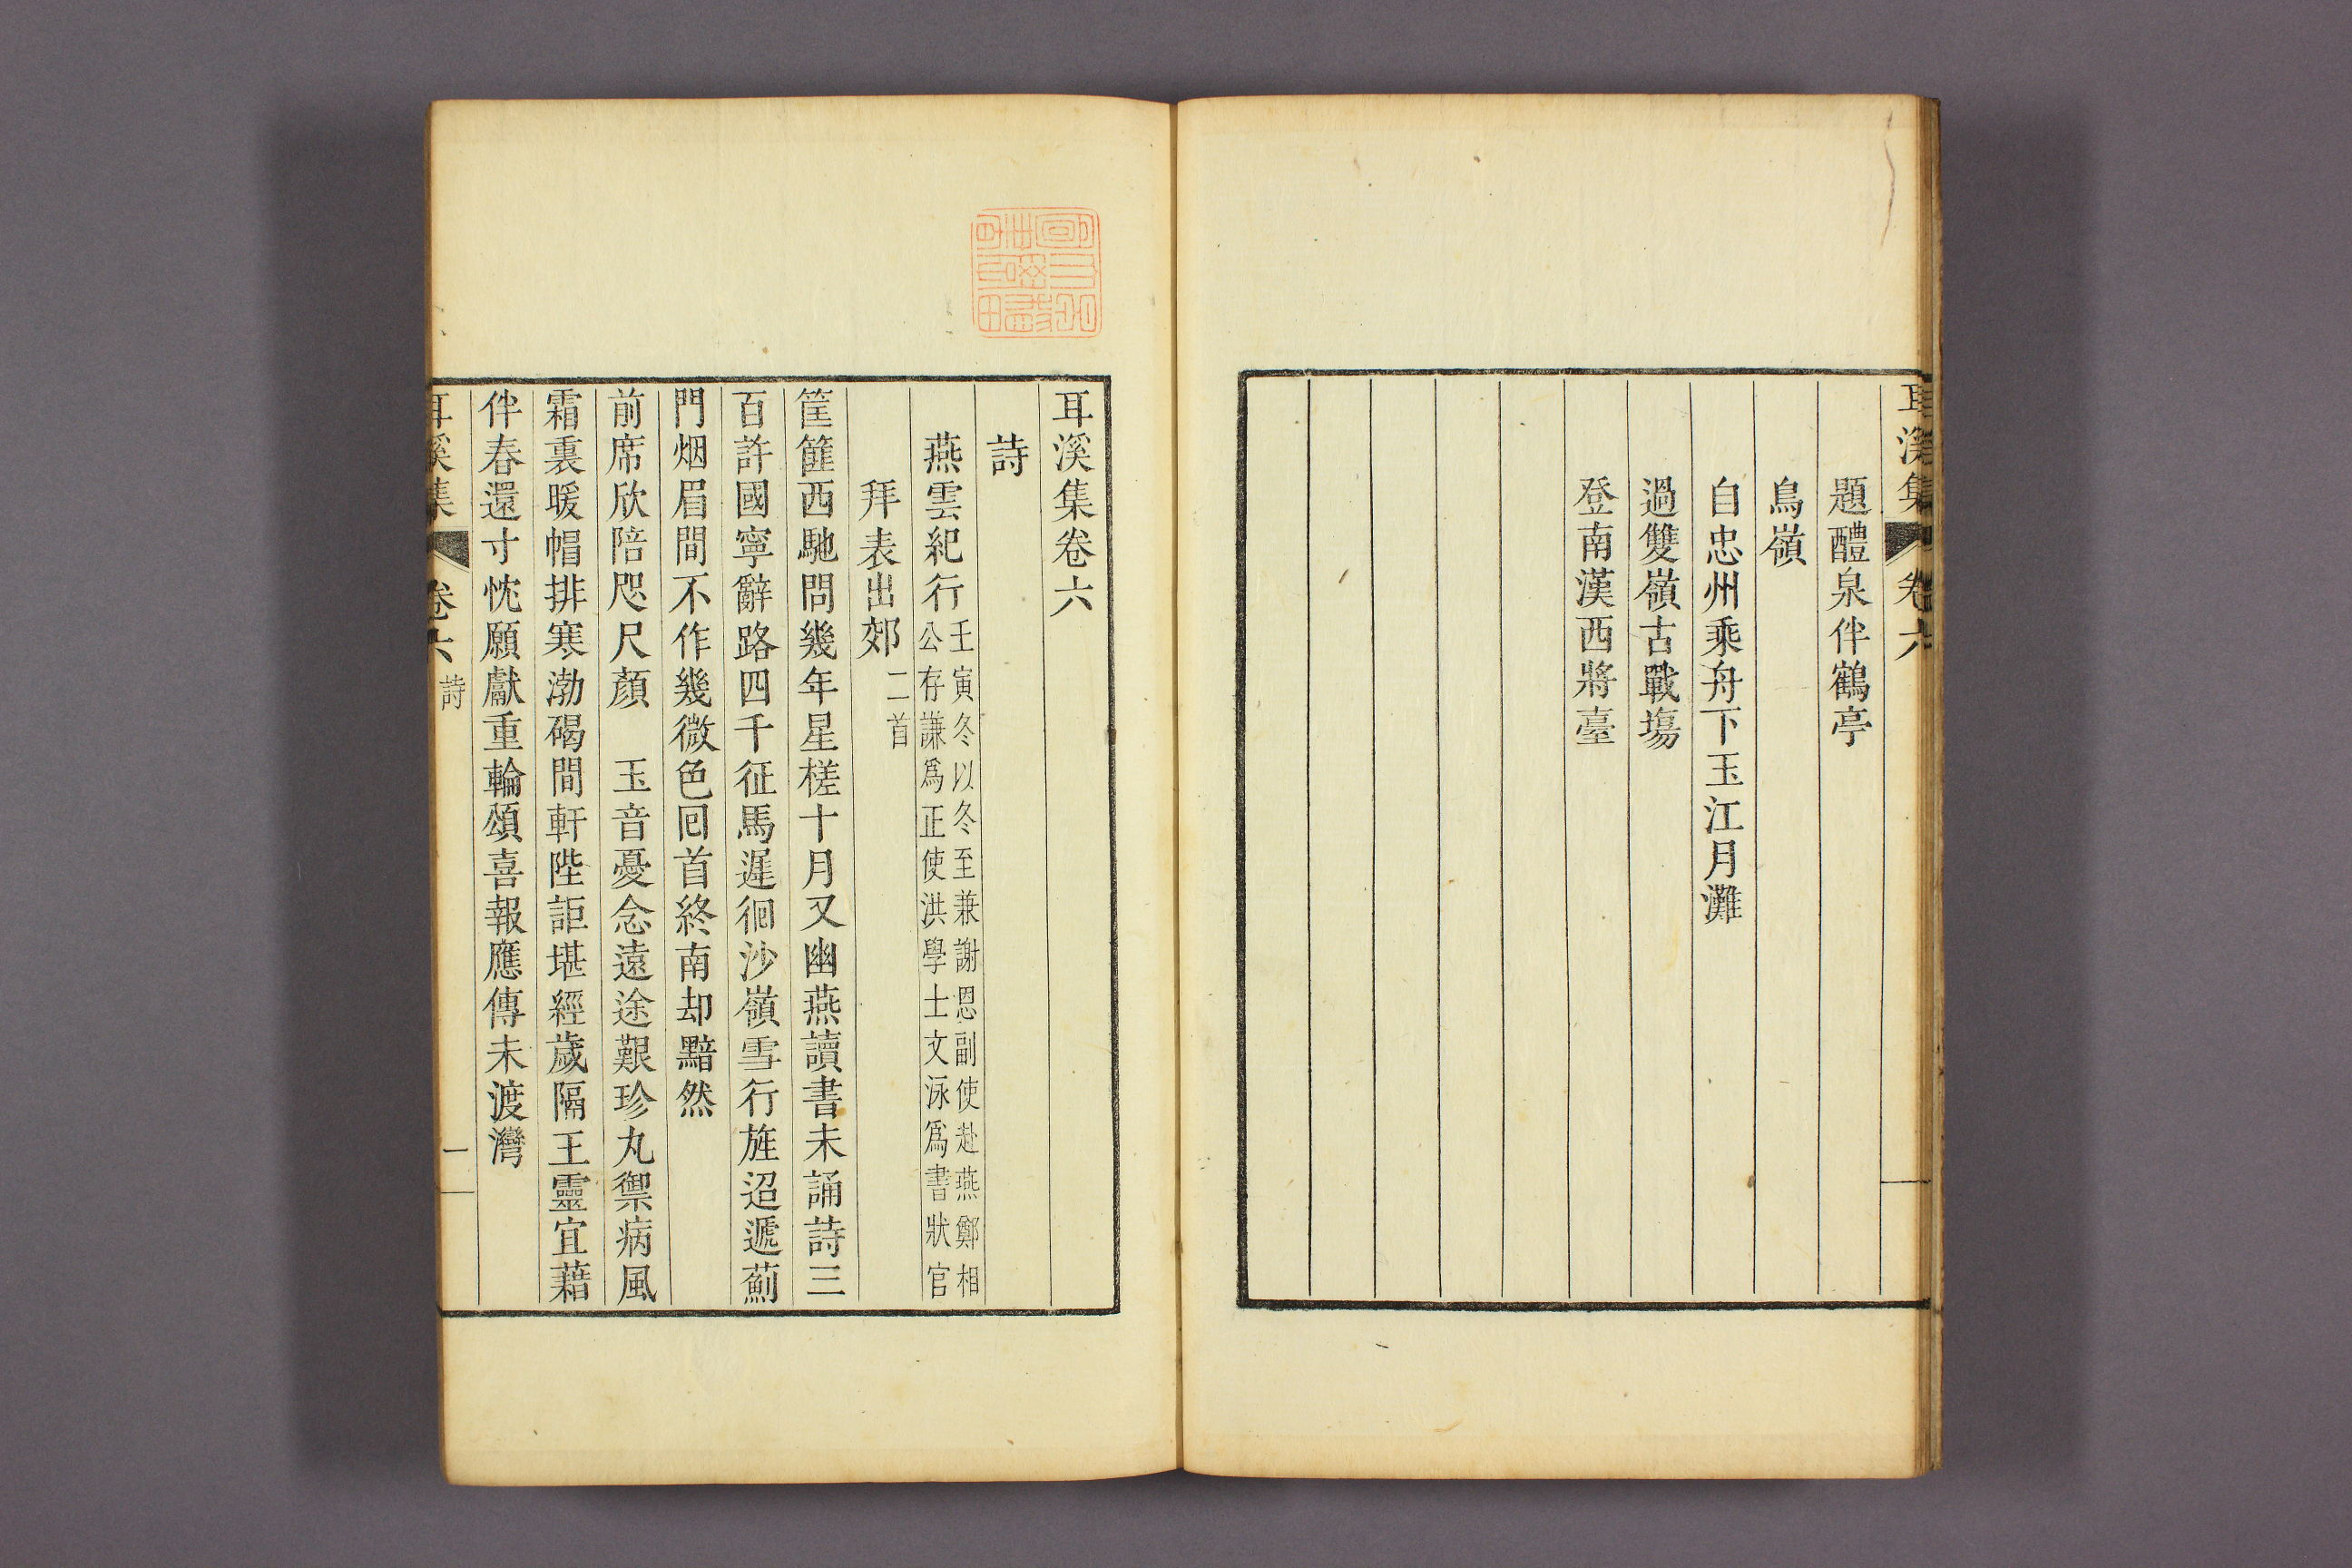 耳溪集 卷六
題醴泉伴鶴亭
鳥嶺
自忠州乘舟下玉江月灘
過雙嶺古戰場
登南漢西將臺
耳溪集卷六
詩
燕雲紀行
壬寅冬以冬至兼謝恩副使赴燕鄭相
公存謙爲正使洪學士文泳爲書狀官
拜表出郊 二首
筐篚西馳問幾年星槎十月又幽燕讀書未誦詩三
百許國寧辭路四千征馬遲徊沙嶺雪行旌迢遞薊
門烟眉間不作幾微色回首終南却黯然
前席欣陪咫尺顏 玉音憂念遠途艱珍丸禦病風
霜裏暖帽排寒渤碣間軒陛詎堪經歲隔王靈宜藉
伴春還寸忱願獻重輪頌喜報應傳未渡灣
耳溪集 卷六 詩 一